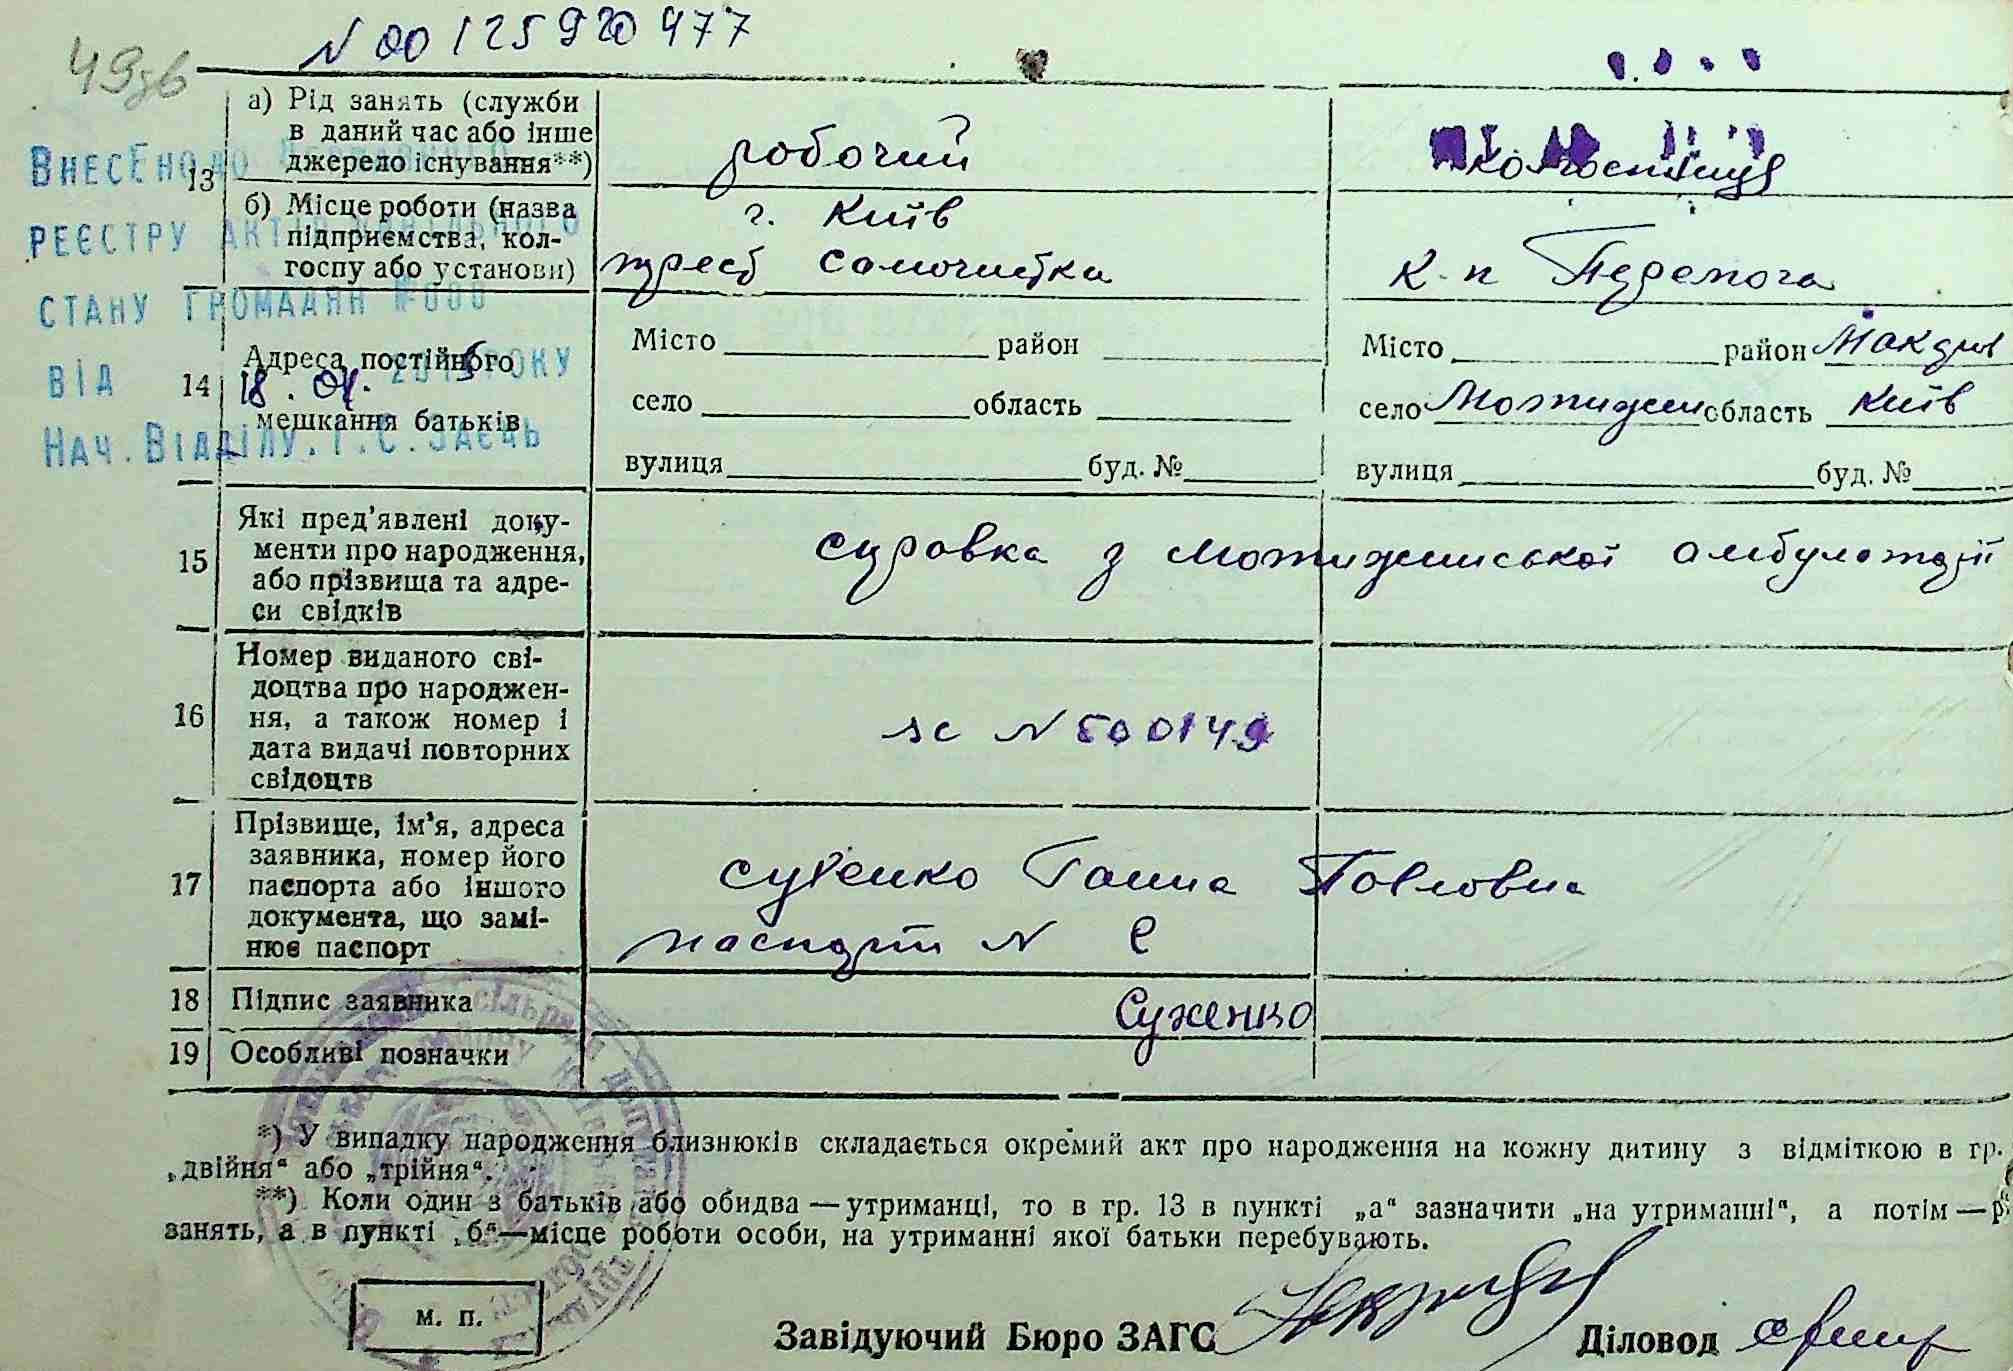 N 00125920477
49зв
ВНЕСЕНО ДО ДЕРЖАВНОГО
РЕЄСТРУ АКТІВ ЦИВІЛЬНОГО
СТАНУ ГРОМАДЯН №000
ВІД 18.04. 2015 РОКУ
НАЧ.ВІДДІЛУ.Г.С.ЗАЄЦЬ
13
а) Рід занять (служби
в даний час або інше
джерело існування**)
робочий
колгоспниця
б) Місце роботи (назва
підприємства, кол-
госпу або установи)
г. Київ
трест самочистка
к-п Перемога
14
Адреса постійного
мешкання батьків
Місто район
село область
вулиця буд. №
Місто район Макарів
село Мотижин область Київ
вулиця буд. №
15
Які пред'явлені доку-
менти про народження,
або прізвища та адре-
си свідків
справка з мотижинської амбулаторії
16
Номер виданого сві-
доцтва про народжен-
ня, а також номер і
дата видачі повторних
свідоцтв
N 500149
17
Прізвище, ім'я, адреса
заявника, номер його
паспорта або іншого
документа, що замі-
нює паспорт
Суженко Ганна Павловна
паспорт N
18 Підпис заявника
Суженко
19 Особливі позначки
*) У випадку народження близнюків складається окремий акт про народження на кожну дитину з відміткою в гр.
„двійня“ або „трійня“.
**) Коли один з батьків або обидва—утриманці, то в гр. 13 в пункті „а“ зазначити „на утриманні“, а потім—р
занять, а в пункті „б“—місце роботи особи, на утриманні якої батьки перебувають.
м. п.
Завідуючий Бюро ЗАГС
Діловод